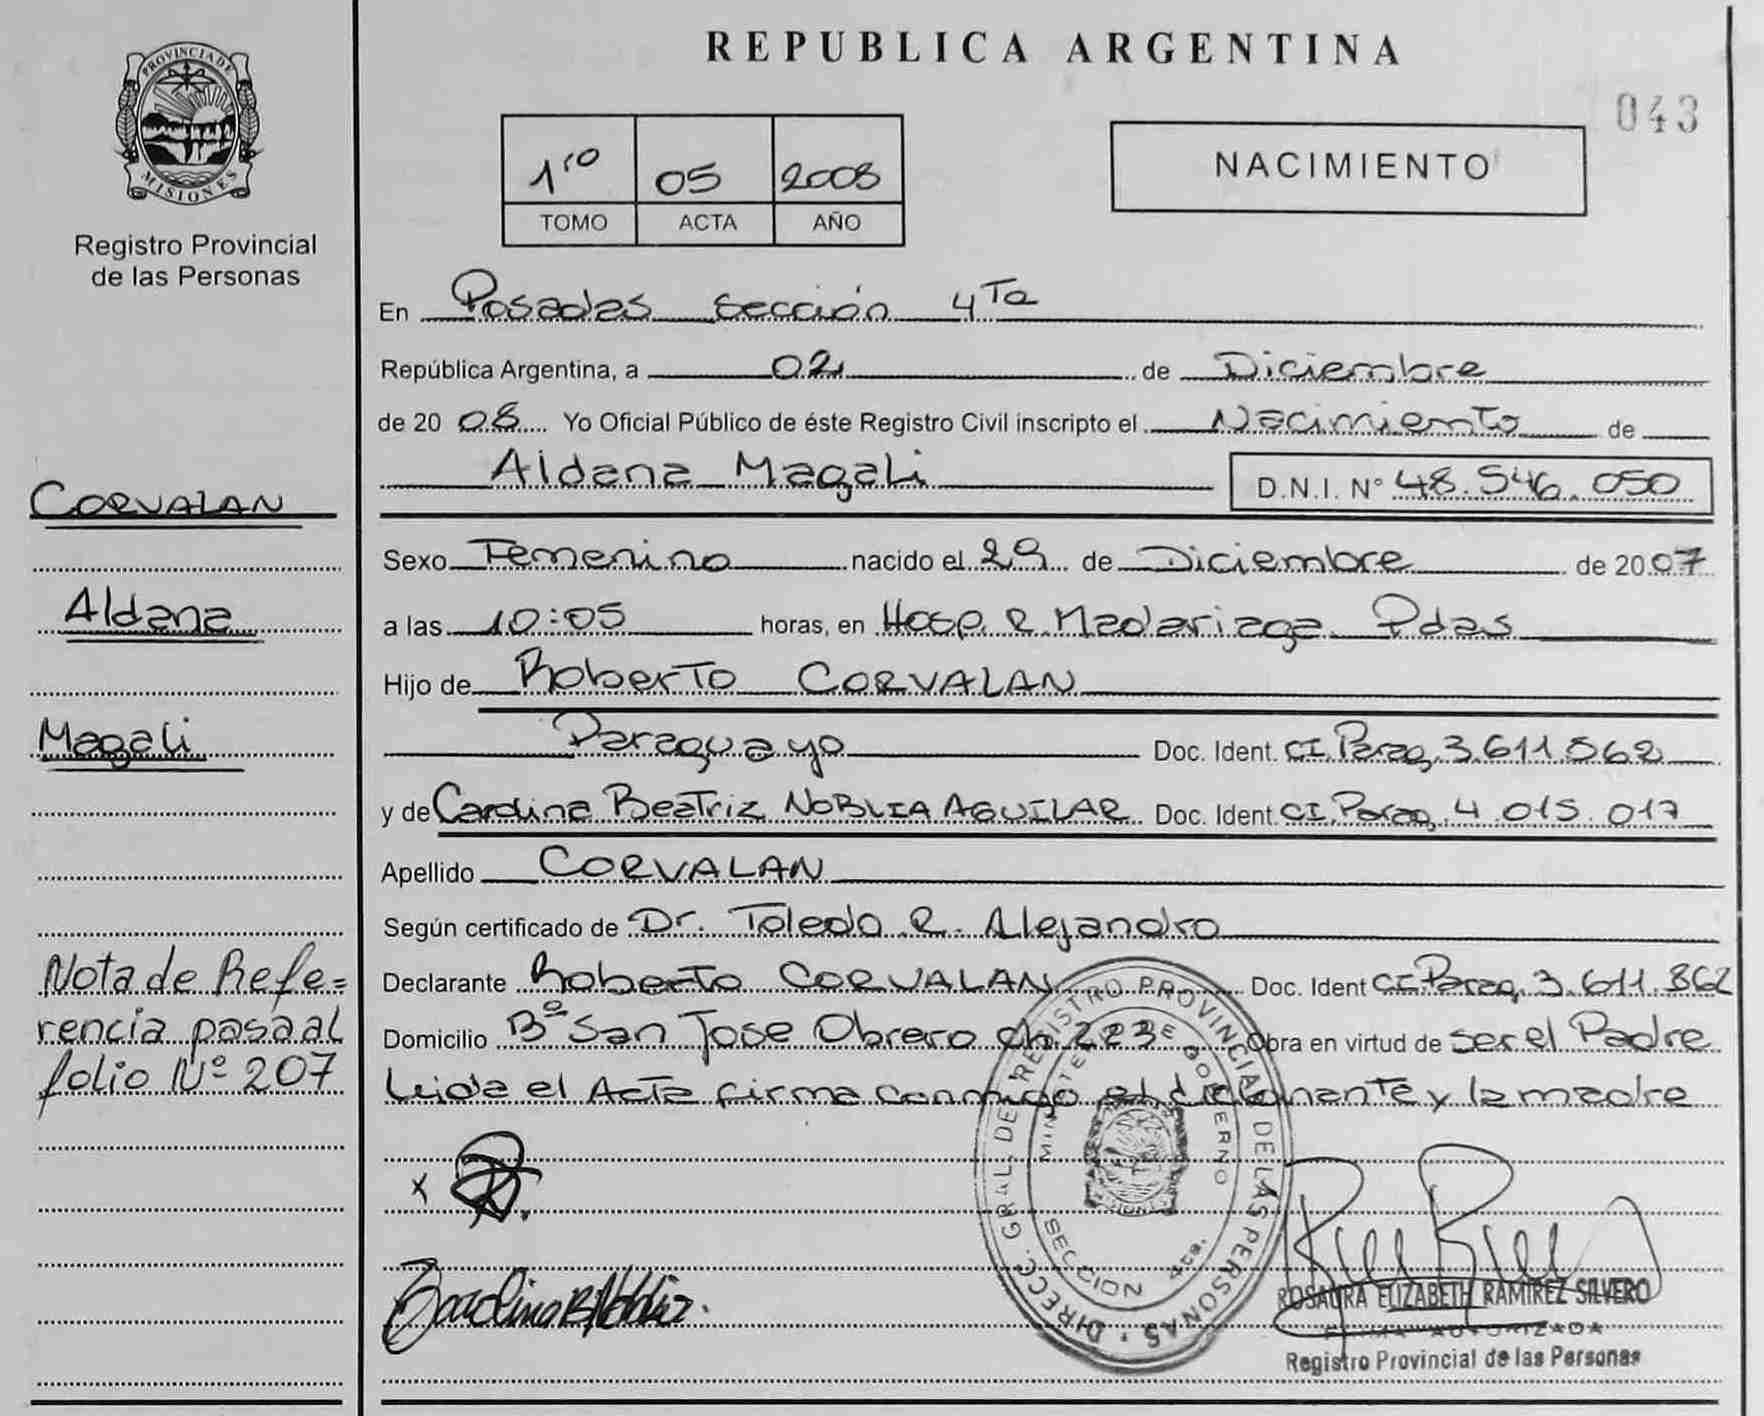 PROVINCIA DE
MISIONES
Registro Provincial
de las Personas
CORVALAN
Aldana
Magali
Nota de Refe=
rencia pasa al
folio Nº 207
REPUBLICA ARGENTINA
043
1ro 05 2008
TOMO ACTA AÑO
NACIMIENTO
En Posadas sección 4Ta
República Argentina, a 02 de Diciembre
de 20 08 Yo Oficial Público de éste Registro Civil inscripto el Nacimiento de
Aldana Magali D.N.I. N° 48.546.050
Sexo Femenino nacido el 29 de Diciembre de 20 07
a las 10:05 horas, en Hosp. R. Madariaga Pdas
Hijo de Roberto CORVALAN
Paraguayo Doc. Ident. CI. Parag. 3.611.562
y de Carolina Beatriz NOBLIA AGUILAR Doc. Ident CI. Parag. 4 015. 017
Apellido CORVALAN
Según certificado de Dr. Toledo R. Alejandro
Declarante Roberto CORVALAN Doc. Ident CI. Parag. 3.611.862
Domicilio Bº San Jose Obrero ch. 223 Obra en virtud de ser el Padre
Leida el Acta firma conmigo el declarante y la madre
x
DIRECC. GRAL. DE REGISTRO PROVINCIAL DE LAS PERSONAS
MINISTERIO DE GOBIERNO
SECCION 4ta.
Carolina B Noblia.
ROSAURA ELIZABETH RAMIREZ SILVERO
FIRMA AUTORIZADA
Registro Provincial de las Personas